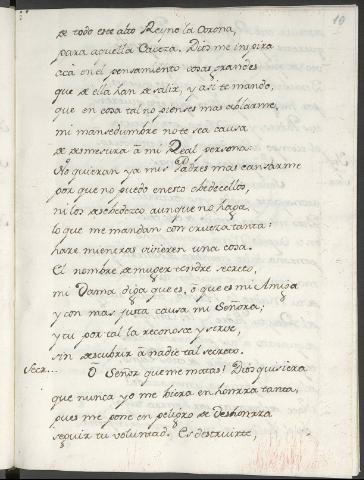 19
de todo este alto Reyno la Corona,
para aquella Caveza. Dios me inspira
acà en el pensamiento cosas grandes
que de ella han de salir, y asi te mando,
que en cosa tal no pienses mas ablarme,
mi mansedumbre no te sea causa
de desmesura â mi Real persona.
No quieran ya mis Padres mas cansarme
por que no puedo en esto obedecellos,
ni los desobedezco aunque no haga
lo que me mandan con crueza tanta:
hare mientras vivieren una cosa.
El nombre de muger tendre secreto,
mi Dama diga que es, ô que es mi Amiga
y con mas justa causa mi Señora;
y tu por tal la reconoce y sirve,
sin descubrir â nadie tal secreto.
Secr... O Señor que me matas! Dios quisiera
que nunca yo me viera en honrra tanta,
pues me pone en peligro de deshonrra
seguir tu voluntad. Es destruirte,